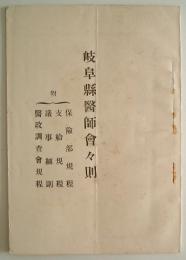 岐阜縣醫師會々則
附
保險部規程
支給規程
議事細則
醫政調查會規程